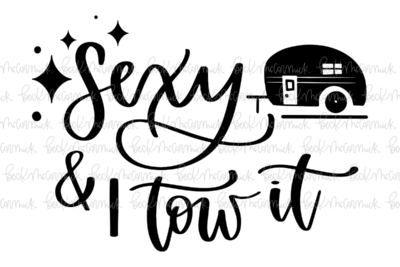 Sexy
& I tow it